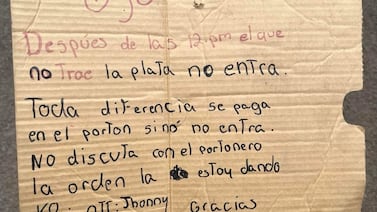 Ojo
Despúes de las 12:pm el que
no Trae la plata no entra.
Toda diferencia se paga
en el porton sinó no entra.
No discuta con el portonero
la orden la estoy dando
Yo: att: Jhonny Gracias